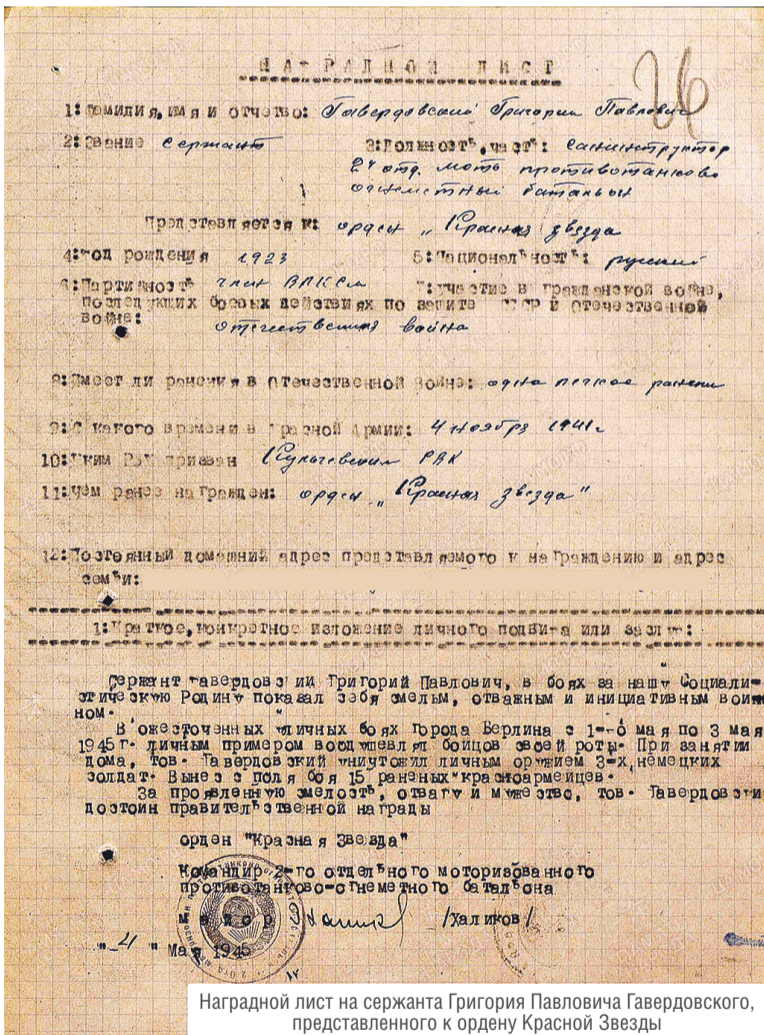 НАГРАДНОЙ ЛИСТ
26
1:Фамилия,имя и отчество: Гавердовский Григорий Павлович
2:Звание сержант 3:Должность,часть: Санинструктор
2й отд. мото противотанково
огнеметный батальон
Представляется к: орден „Красная звезда
4:Год рождения 1923 5:Национальность: русский
6:Партийность член ВЛКСМ 7:участие в гражданской войне,
последующих боевых действиях по защите СССР и отечественной
войне:
отечественная война
8:Имеет ли ранения в отечественной войне: одно легкое ранение
9:С какого времени в красной Армии: 4 ноября 1941г
10:Каким РВК призван РВК
11:Чем ранее награжден: орден „Красная звезда"
12:Постоянный домашний адрес представляемого к награждению и адрес
семьи:
1:Краткое,конкретное изложение личного подвига или заслуг:
Сержант Гавердовский Григорий Павлович, в боях за нашу Социали-
стическую Родину показал себя смелым, отважным и инициативным вои-
ном.
В ожесточенных уличных боях города Берлина с 1-го мая по 3 мая
1945 г. личным примером воодушевлял бойцов своей роты. При занятии
дома, тов. Гавердовский уничтожил личным оружием 3-х немецких
солдат. Вынес с поля боя 15 раненых красноармейцев.
За проявленную смелость, отвагу и мужество, тов. Гавердовский
достоин правительственной награды
орден "Красная Звезда"
Командир 2-го отдельного моторизованного
противотанково-огнеметного батальона
майор /Халиков/
"4" Мая 1945
Наградной лист на сержанта Григория Павловича Гавердовского,
представленного к ордену Красной Звезды